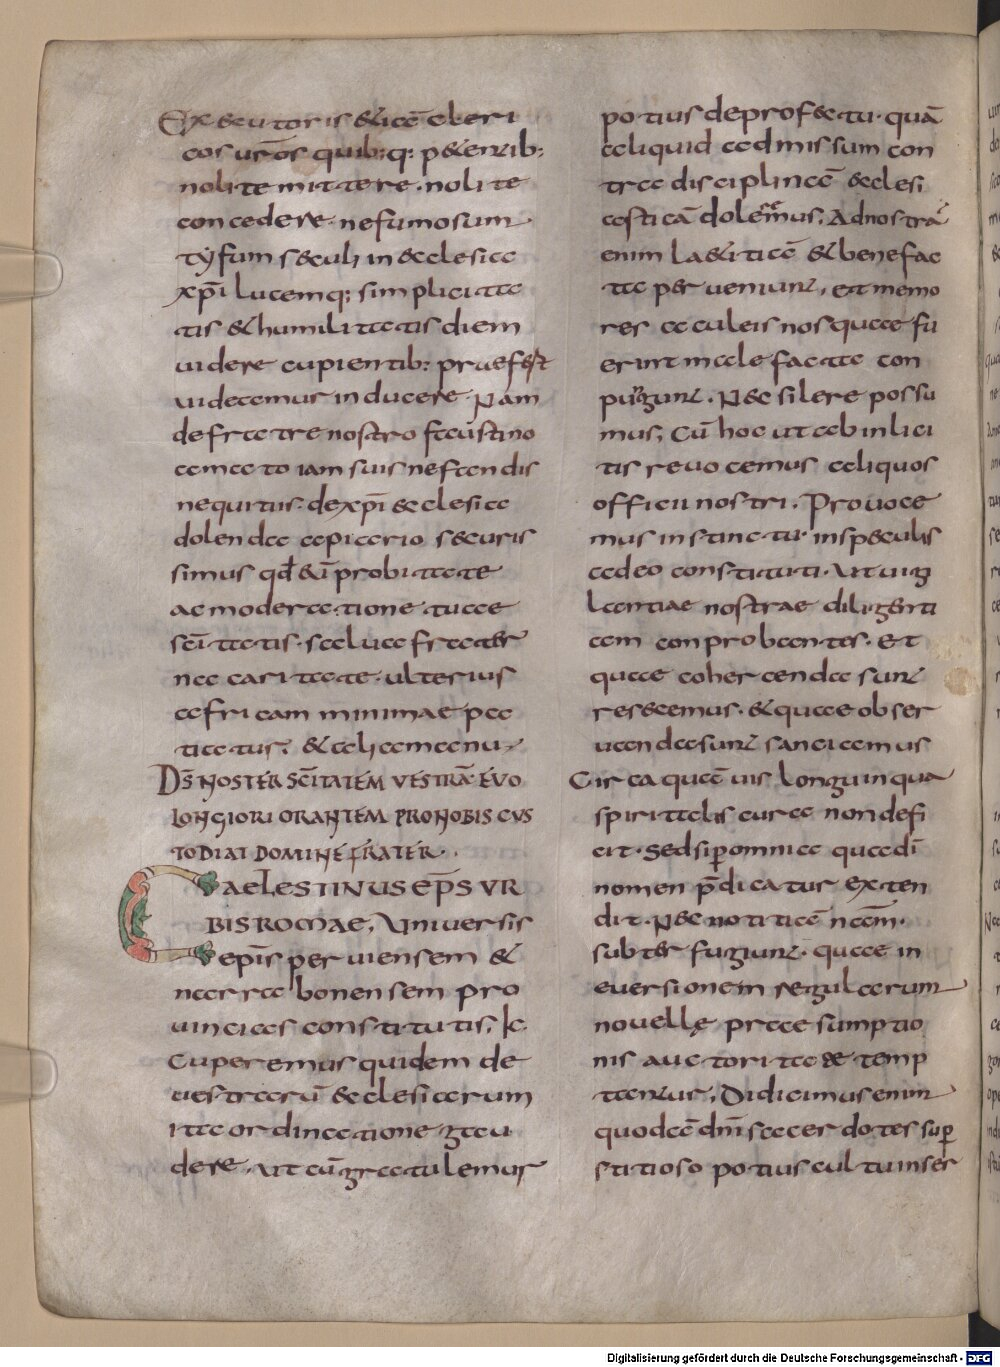 Exsecutoris & iā cleri
cos urōs quib:q: p&entib:
nolite mittere. nolite
concedere. nefumosum
tyfum s&culi in &clesia
xp̄i lucemq; simplicita
tis & humilitatis diem
uidere cupientib: praefe&
uideamur inducere. Nam
defratre nostro faustino
amato iam suis nefandis
nequitiis. dexp̄i &clesia
dolenda apiario s&curis
simus qđ eū probitate
ac moderatione tuae
sc̄itatis. salua frater
na caritate. ulterius
africam minimae pa
tiatur; & alia manu.
D̄S NOSTER SC̄ITATEM VESTRĀ EVO
LONGIORI ORANTEM PRO NOBIS CUS
TODIAT DOMINE FRATER.
CAELESTINUS EP̄S UR
BIS ROMAE, Uniuersis
ep̄is per uiensem &
narrabonensem pro
uincias constitutis,
Cuperemus quidem de
uestrarū &clesiarum
ita ordinatione gau
dere. ut cūgratulemur
potius deprof&tu. quā
aliquid admissum con
tra disciplinā &clesi
asticā doleremus, Ad nostrā
enim la&itiā & benefac
ta perueniunt, et memo
res aculeis nos quae fu
erint male facta con
pungunt. N&c silere possu
mus, Cū hoc ut ab inlici
tis reuocemus aliquos
officii nostri. Prouoce
mur instinctu. insp&culis
adeo constituti. Ut uigi
lantiae nostrae diligenti
am conprobantes. Et
quae coher cenda sunt
res&emus. & quae obser
uanda sunt sanciamus
Circa quāuis longuinqua
spiritalis cura non defi
cit. sed sip̄ omnia qua di
nomen p̄dicatur exten
dit. N&c notitiā nc̄m.
subter fugiunt. quae in
euersionem regularum
nouellę praesumptio
nis auctoritate temp
tantur, Didicimus enim
quodā dn̄i sacerdotes sup̄
stitioso potius cultu inser